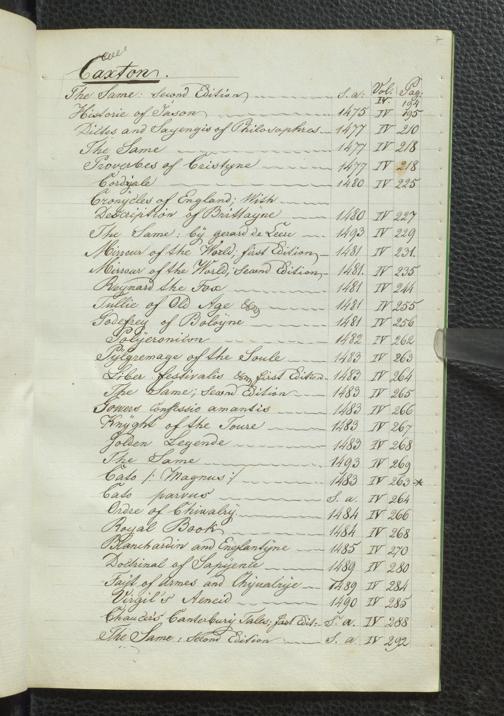 7
Caxton.
Vol: Pag:
The Same: Second Edition S. a. IV 194
Historie of Jason 1475 IV 195
Dictes and Sayengis of Philosophres 1477 IV 210
The Same 1477 IV 218
Proverbes of Cristyne 1477 IV 218
Cordyale 1480 IV 225
Cronycles of England; With
Description of Brittayne 1480 IV 227
The Same: by gerard de Leeu 1493 IV 229
Mirrour of the World, first Edition 1481 IV 231.
Mirrour of the World; Second Edition 1481. IV 235
Reynard the Fox 1481 IV 244
Tullie of Old Age &c 1481 IV 255
Godefrey of Boloyne 1481 IV 256
Polycronicon 1482 IV 262
Pylgremage of the Soule 1483 IV 263
Liber festivalis &c first Edition 1483 IV 264
The Same; Second Edition 1483 IV 265
Gowers Confessio amantis 1483 IV 266
Knyght of the Toure 1483 IV 267
Golden Legende 1483 IV 268
The Same 1493 IV 269
Cato /: Magnus :/ 1483 IV 263 *
Cato parvus S. a. IV 264
Ordre of Chivalry 1484 IV 266
Royal Book 1484 IV 268
Blanchardin and Englantyne 1485 IV 270
Doctrinal of Sapyence 1489 IV 280
Fait of Armes and Chyualrye 1489 IV 284
Virgil's Aeneid 1490 IV 285
Chaucer's Canterbury Tales; first Edit: S. a. IV 288
The Same: Second Edition S. a. IV 292